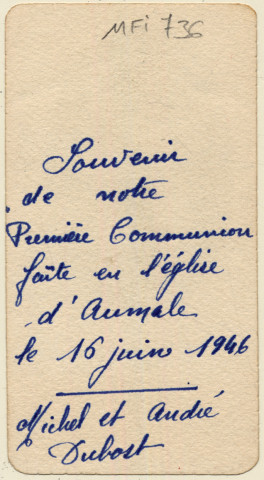 MFi 736
Souvenir
de notre
Première Communion
faîte en l'église
d'Aumale
le 16 juin 1946
Michel et André
Dubost